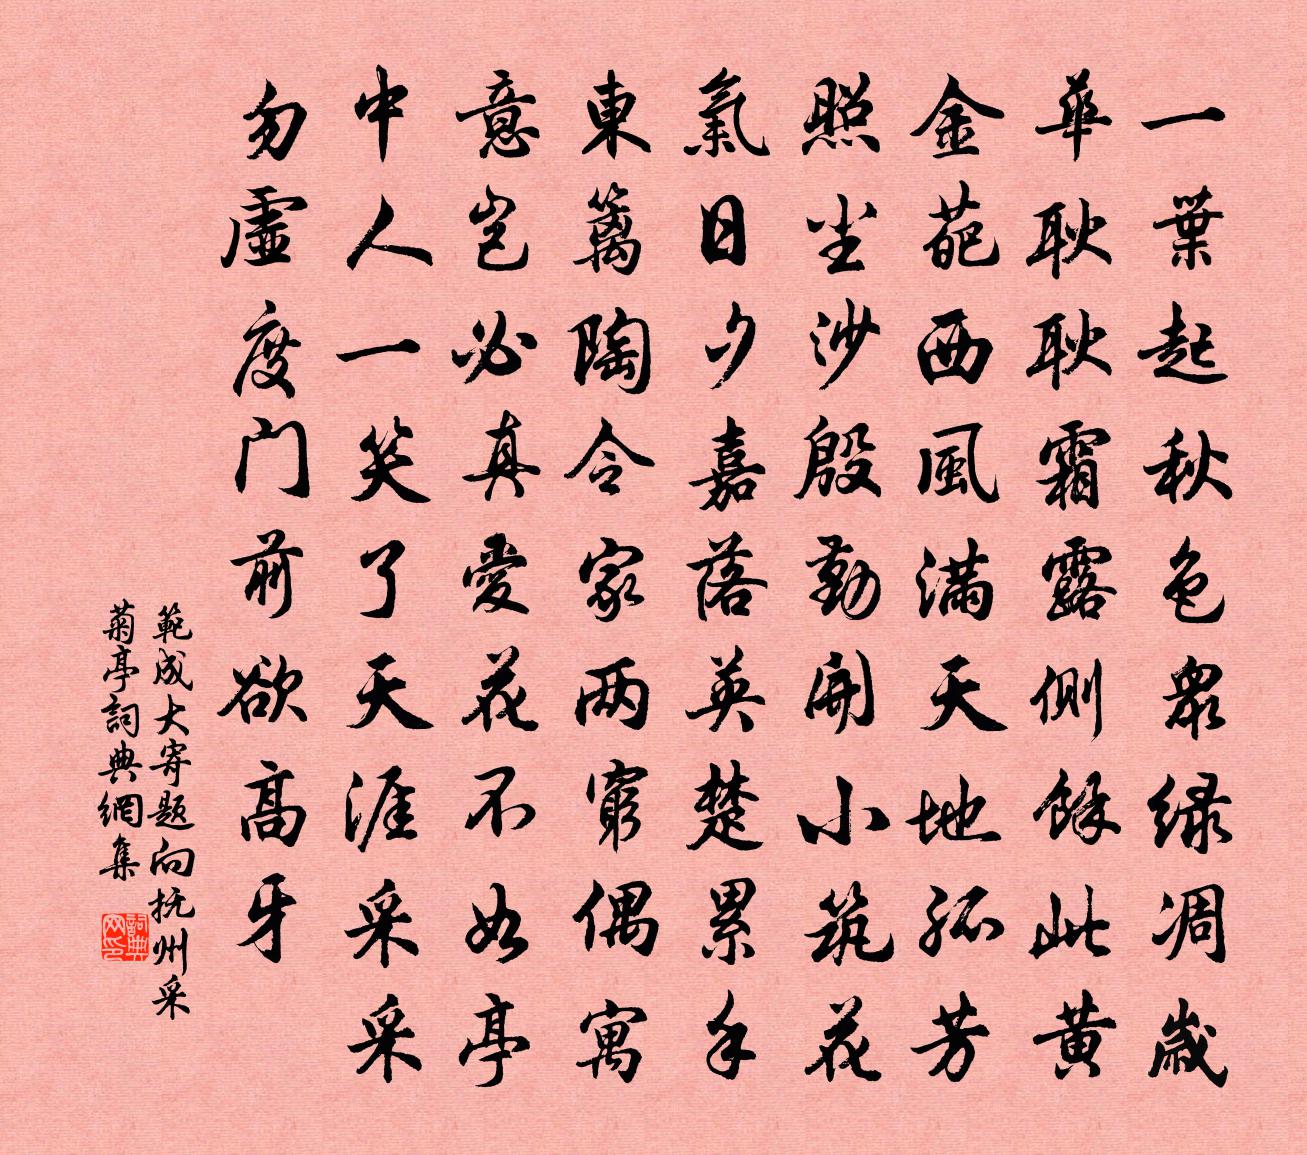 一葉起秋色眾緑凋歲
華耿耿霜露側餘此黃
金葩西風滿天地孤芳
照坐沙殷勤開小筑花
氣日夕嘉落英楚累手
東篱陶令家两窮偶寓
意岂必真愛花不如亭
中人一笑了天涯采采
勿虛度门前欲高牙
範成大寄题向抚州采
菊亭詞典網集
詞典网印